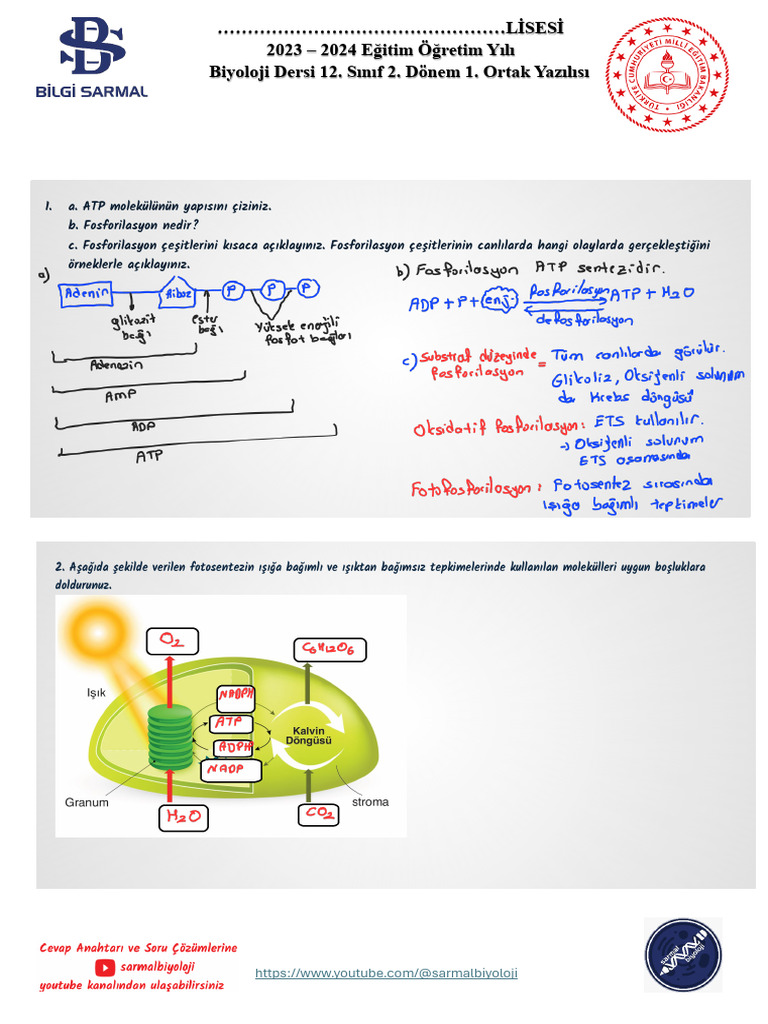 BS
BİLGİ SARMAL
………………………………………….LİSESİ
2023 – 2024 Eğitim Öğretim Yılı
Biyoloji Dersi 12. Sınıf 2. Dönem 1. Ortak Yazılısı
TÜRKİYE CUMHURİYETİ MİLLÎ EĞİTİM BAKANLIĞI
1. a. ATP molekülünün yapısını çiziniz.
b. Fosforilasyon nedir?
c. Fosforilasyon çeşitlerini kısaca açıklayınız. Fosforilasyon çeşitlerinin canlılarda hangi olaylarda gerçekleştiğini
örneklerle açıklayınız.
a)
Adenin Riboz P P P
glikozit
bağı
ester
bağı
Yüksek enerjili
fosfat bağları
Adenozin
AMP
ADP
ATP
b) Fosforilasyon ATP sentezidir.
ADP + P + enj. fosforilasyon ATP + H2O
defosforilasyon
c) Substrat düzeyinde = Tüm canlılarda görülür.
fosforilasyon
Glikoliz, Oksijenli solunum
da Krebs döngüsü
Oksidatif fosforilasyon: ETS kullanılır.
→ Oksijenli solunum
ETS aşamasında
Fotofosforilasyon: Fotosentez sırasında
ışığa bağımlı tepkimeler
2. Aşağıda şekilde verilen fotosentezin ışığa bağımlı ve ışıktan bağımsız tepkimelerinde kullanılan molekülleri uygun boşluklara
doldurunuz.
O2
C6H12O6
Işık
NADPH
ATP
ADPH
NADP
Kalvin
Döngüsü
Granum
stroma
H2O
CO2
Cevap Anahtarı ve Soru Çözümlerine
sarmalbiyoloji
youtube kanalından ulaşabilirsiniz
https://www.youtube.com/@sarmalbiyoloji
sarmal
biyoloji